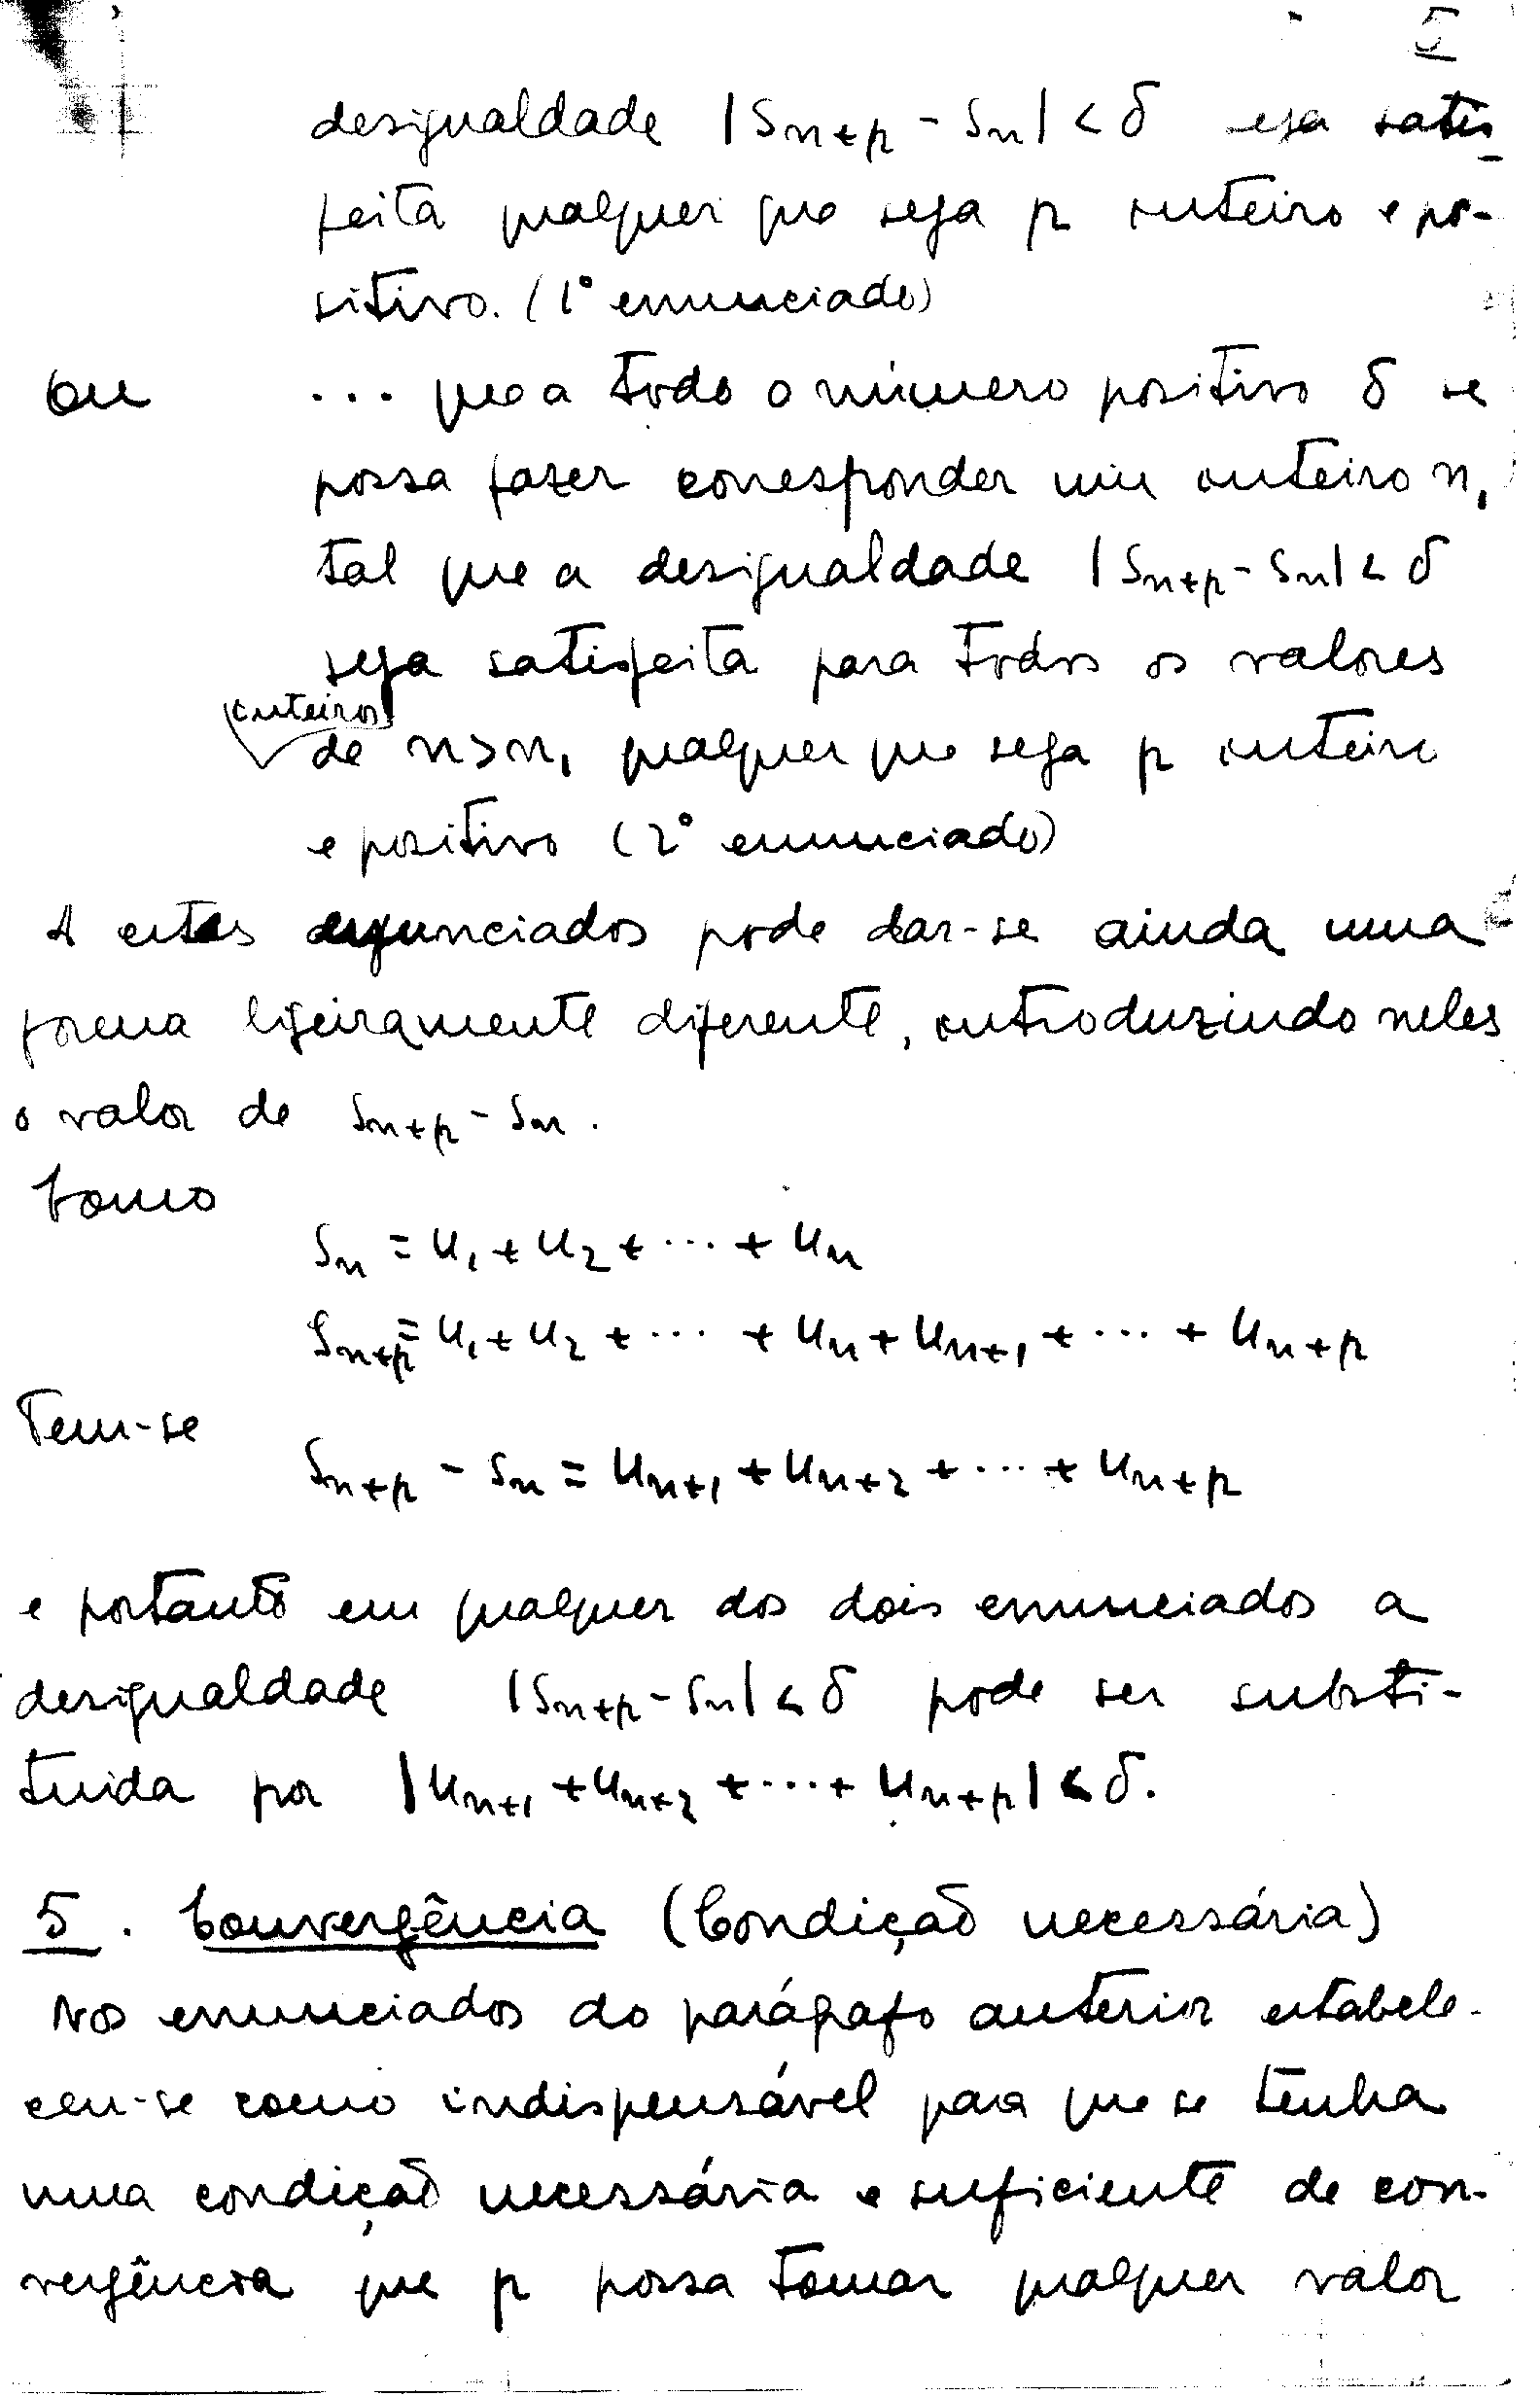 5
desigualdade |Sn+p - Sn| < δ seja satis-
feita qualquer que seja p inteiro e po-
sitivo. (1º enunciado)
ou ... que a todo o número positivo δ se
possa fazer corresponder um inteiro n₁
tal que a desigualdade |Sn+p - Sn| < δ
seja satisfeita para todos os valores
inteiros
de n > n₁ qualquer que seja p inteiro
e positivo (2º enunciado)
A estes enunciados pode dar-se ainda uma
forma ligeiramente diferente, introduzindo neles
o valor de Sn+p - Sn.
Como
Sn = u₁ + u₂ + ... + un
Sn+p = u₁ + u₂ + ... + un + un+1 + ... + un+p
Tem-se
Sn+p - Sn = un+1 + un+2 + ... + un+p
e portanto em qualquer dos dois enunciados a
desigualdade |Sn+p - Sn| < δ pode ser substi-
tuida por |un+1 + un+2 + ... + un+p| < δ.
5. Convergência (Condição necessária)
Nos enunciados do parágrafo anterior estabele-
ceu-se como indispensável para que se tenha
uma condição necessária e suficiente de con-
vergência que p possa tomar qualquer valor